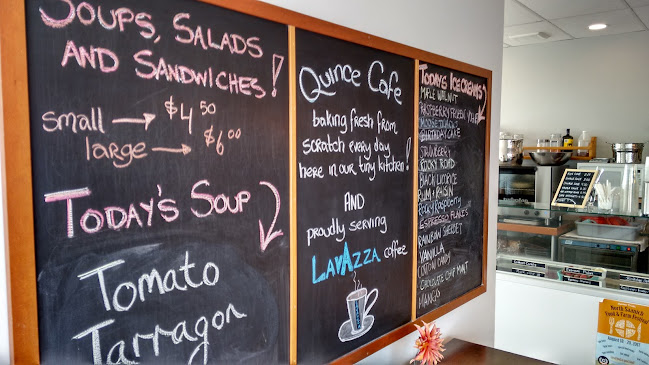 Soups, Salads
and Sandwiches!
small → $4.50
large → $6.00
Today's Soup
Tomato
Tarragon
Quince Cafe
baking fresh from
scratch every day
here in our tiny kitchen!
AND
proudly serving
LavAzza coffee
Today's Ice Creams
Maple Walnut
Raspberry Frozen
Moose Tracks
Birthday Cake
Strawberry
Rocky Road
Black Licorice
Rum + Raisin
Raspberry
Espresso Flakes
Rainbow Sherbet
Vanilla
Cotton Candy
Chocolate Chip Mint
Mango
Food & Farm Festival